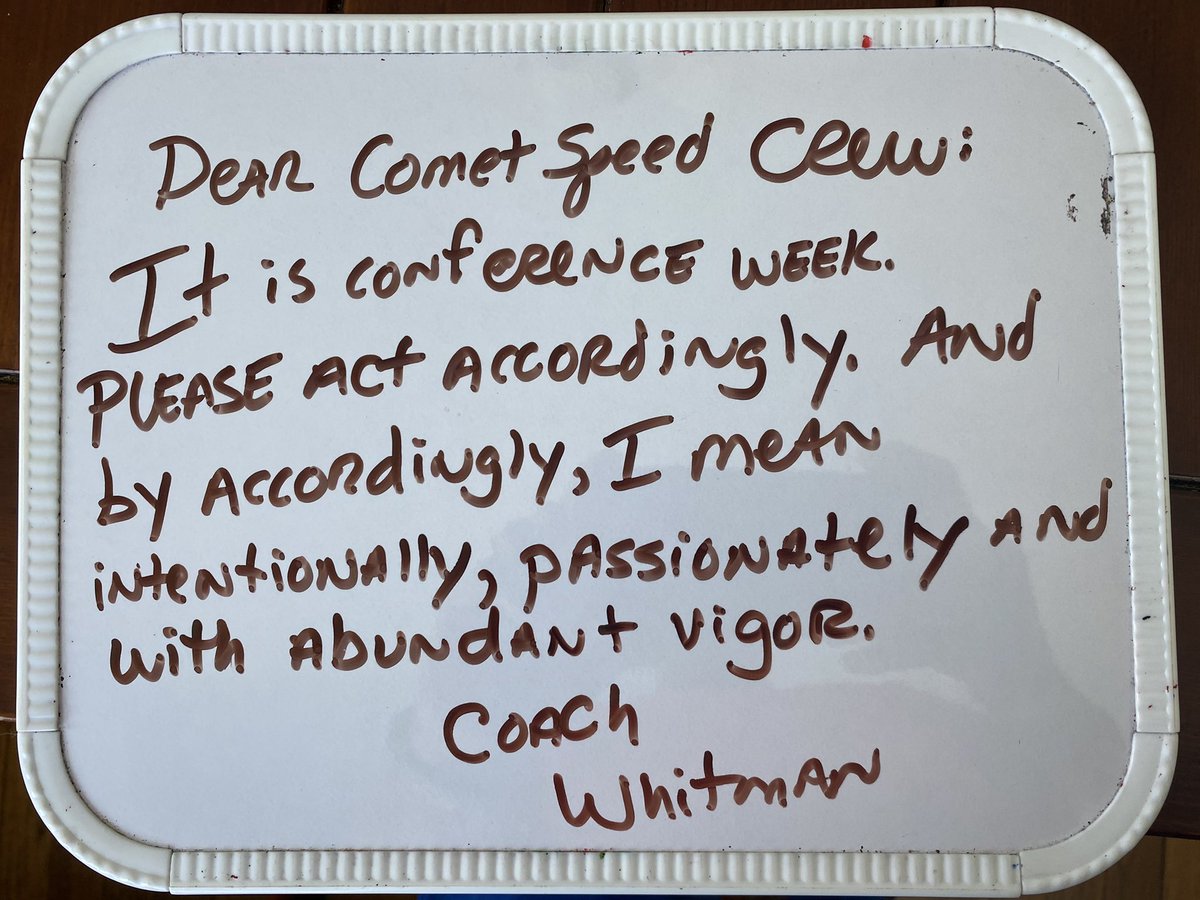 Dear Comet Speed Crew:
It is conference week.
Please act accordingly. And
by accordingly, I mean
intentionally, passionately and
with abundant vigor.
Coach
Whitman